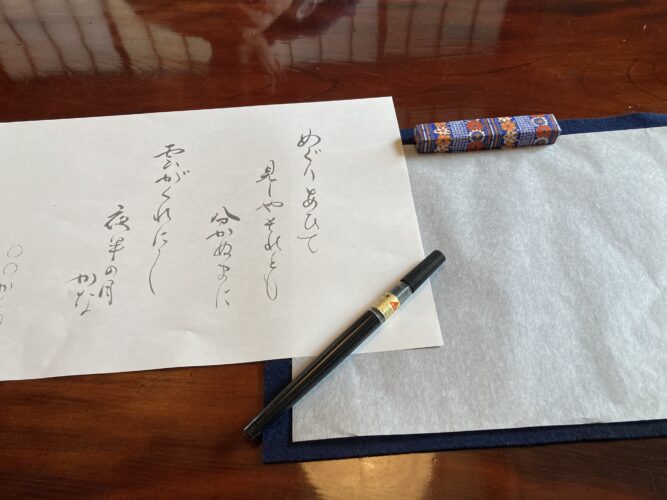 めぐりあひて
見しやそれとも
分かぬまに
雲がくれにし
夜半の月
かな
〇〇かく